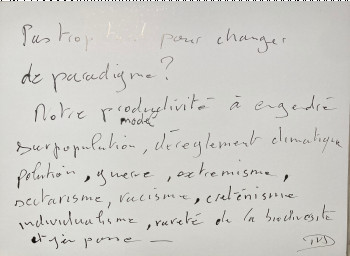 Pas trop tard pour changer
de paradigme?
Notre productivité à engendré
mode
surpopulation, dérèglement climatique
polution, guerre, extremisme,
sectarisme, racisme, creténisme
individualisme, rareté de la biodiversité
et j'en passe —